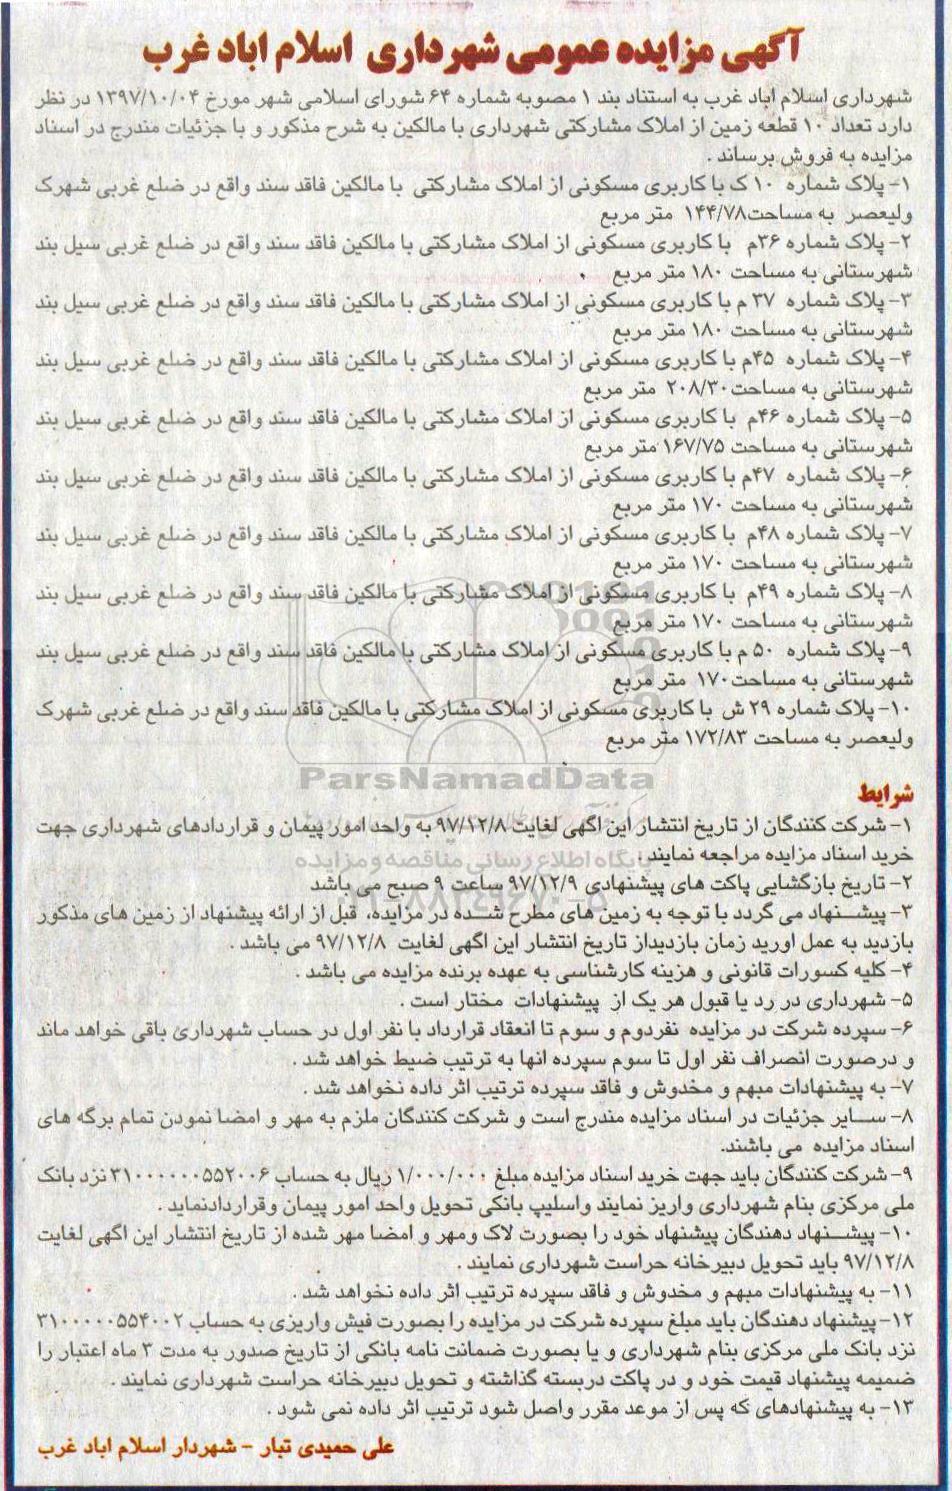 آگهی مزایده عمومی شهرداری اسلام اباد غرب
شهرداری اسلام اباد غرب به استناد بند ۱ مصوبه شماره ۶۴ شورای اسلامی شهر مورخ ۱۳۹۷/۱۰/۰۴ در نظر
دارد تعداد ۱۰ قطعه زمین از املاک مشارکتی شهرداری با مالکین به شرح مذکور و با جزئیات مندرج در اسناد
مزایده به فروش برساند .
۱- پلاک شماره ۱۰ ک با کاربری مسکونی از املاک مشارکتی با مالکین فاقد سند واقع در ضلع غربی شهرک
ولیعصر به مساحت ۱۴۴/۷۸ متر مربع
۲- پلاک شماره ۳۶م با کاربری مسکونی از املاک مشارکتی با مالکین فاقد سند واقع در ضلع غربی سیل بند
شهرستانی به مساحت ۱۸۰ متر مربع
۳- پلاک شماره ۳۷ م با کاربری مسکونی از املاک مشارکتی با مالکین فاقد سند واقع در ضلع غربی سیل بند
شهرستانی به مساحت ۱۸۰ متر مربع
۴- پلاک شماره ۴۵م با کاربری مسکونی از املاک مشارکتی با مالکین فاقد سند واقع در ضلع غربی سیل بند
شهرستانی به مساحت ۲۰۸/۳۰ متر مربع
۵- پلاک شماره ۴۶م با کاربری مسکونی از املاک مشارکتی با مالکین فاقد سند واقع در ضلع غربی سیل بند
شهرستانی به مساحت ۱۶۷/۷۵ متر مربع
۶- پلاک شماره ۴۷م با کاربری مسکونی از املاک مشارکتی با مالکین فاقد سند واقع در ضلع غربی سیل بند
شهرستانی به مساحت ۱۷۰ متر مربع
۷- پلاک شماره ۴۸م با کاربری مسکونی از املاک مشارکتی با مالکین فاقد سند واقع در ضلع غربی سیل بند
شهرستانی به مساحت ۱۷۰ متر مربع
۸- پلاک شماره ۴۹م با کاربری مسکونی از املاک مشارکتی با مالکین فاقد سند واقع در ضلع غربی سیل بند
شهرستانی به مساحت ۱۷۰ متر مربع
۹- پلاک شماره ۵۰ م با کاربری مسکونی از املاک مشارکتی با مالکین فاقد سند واقع در ضلع غربی سیل بند
شهرستانی به مساحت ۱۷۰ متر مربع
۱۰- پلاک شماره ۲۹ ش با کاربری مسکونی از املاک مشارکتی با مالکین فاقد سند واقع در ضلع غربی شهرک
ولیعصر به مساحت ۱۷۲/۸۳ متر مربع
ParsNamadData
شرایط
۱- شرکت کنندگان از تاریخ انتشار این اگهی لغایت ۹۷/۱۲/۸ به واحد امور پیمان و قراردادهای شهرداری جهت
خرید اسناد مزایده مراجعه نمایند .
پایگاه اطلاع رسانی مناقصه و مزایده
۲- تاریخ بازگشایی پاکت های پیشنهادی ۹۷/۱۲/۹ ساعت ۹ صبح می باشد
۰۲۱-۸۸۳۴۹۶۷۰-۵
۳- پیشنهاد می گردد با توجه به زمین های مطرح شده در مزایده، قبل از ارائه پیشنهاد از زمین های مذکور
بازدید به عمل اورید زمان بازدیداز تاریخ انتشار این اگهی لغایت ۹۷/۱۲/۸ می باشد .
۴- کلیه کسورات قانونی و هزینه کارشناسی به عهده برنده مزایده می باشد .
۵- شهرداری در رد یا قبول هر یک از پیشنهادات مختار است .
۶- سپرده شرکت در مزایده نفردوم و سوم تا انعقاد قرارداد با نفر اول در حساب شهرداری باقی خواهد ماند
و درصورت انصراف نفر اول تا سوم سپرده انها به ترتیب ضبط خواهد شد .
۷- به پیشنهادات مبهم و مخدوش و فاقد سپرده ترتیب اثر داده نخواهد شد .
۸- سایر جزئیات در اسناد مزایده مندرج است و شرکت کنندگان ملزم به مهر و امضا نمودن تمام برگه های
اسناد مزایده می باشند.
۹- شرکت کنندگان باید جهت خرید اسناد مزایده مبلغ ۱/۰۰۰/۰۰۰ ریال به حساب ۳۱۰۰۰۰۰۰۵۵۲۰۰۶ نزد بانک
ملی مرکزی بنام شهرداری واریز نمایند واسلیپ بانکی تحویل واحد امور پیمان وقراردادنماید .
۱۰- پیشنهاد دهندگان پیشنهاد خود را بصورت لاک ومهر و امضا مهر شده از تاریخ انتشار این اگهی لغایت
۹۷/۱۲/۸ باید تحویل دبیرخانه حراست شهرداری نمایند .
۱۱- به پیشنهادات مبهم و مخدوش و فاقد سپرده ترتیب اثر داده نخواهد شد .
۱۲- پیشنهاد دهندگان باید مبلغ سپرده شرکت در مزایده را بصورت فیش واریزی به حساب ۳۱۰۰۰۰۰۵۵۴۰۰۲
نزد بانک ملی مرکزی بنام شهرداری و یا بصورت ضمانت نامه بانکی از تاریخ صدور به مدت ۳ ماه اعتبار را
ضمیمه پیشنهاد قیمت خود و در پاکت دربسته گذاشته و تحویل دبیرخانه حراست شهرداری نمایند .
۱۳- به پیشنهادهای که پس از موعد مقرر واصل شود ترتیب اثر داده نمی شود .
علی حمیدی تبار - شهردار اسلام اباد غرب